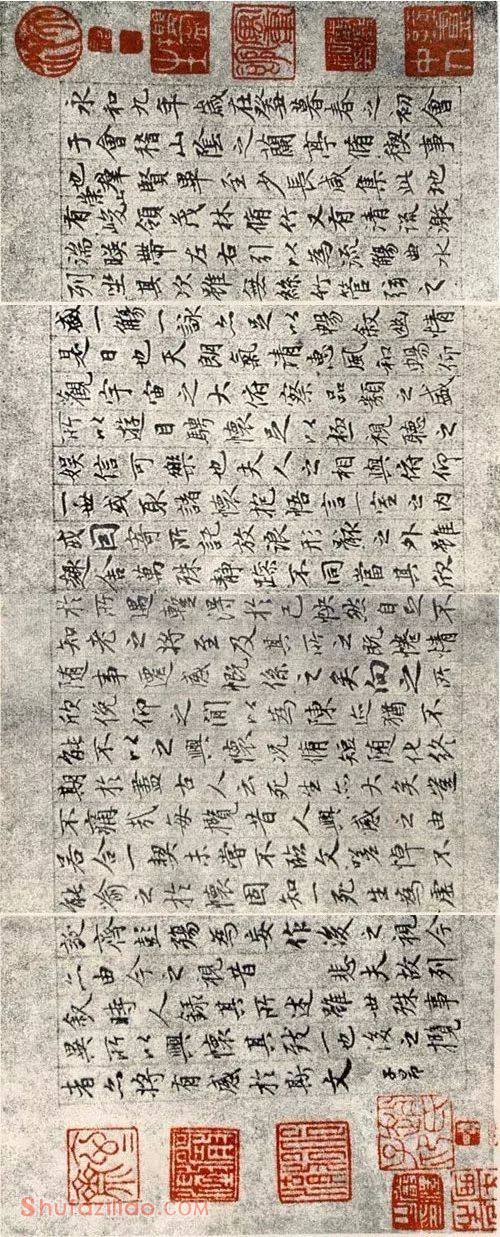 永和九年歲在癸丑暮春之初會
于會稽山陰之蘭亭脩稧事
也羣賢畢至少長咸集此地
有崇山峻領茂林脩竹又有清流激
湍暎帶左右引以為流觴曲水
列坐其次雖無絲竹管弦之
盛一觴一詠亦足以暢敘幽情
是日也天朗氣清惠風和暢仰
觀宇宙之大俯察品類之盛
所以遊目騁懷足以極視聽之
娛信可樂也夫人之相與俯仰
一世或取諸懷抱悟言一室之內
或因寄所託放浪形骸之外雖
趣舍萬殊靜躁不同當其欣
於所遇暫得於己怏然自足不
知老之將至及其所之既惓情
隨事遷感慨係之矣向之所
欣俛仰之間以為陳迹猶不
能不以之興懷況脩短隨化終
期於盡古人云死生亦大矣豈
不痛哉每攬昔人興感之由
若合一契未嘗不臨文嗟悼不
能喻之於懷固知一死生為虛
誕齊彭殤為妄作後之視今
亦由今之視昔悲夫故列
敘時人錄其所述雖世殊事
異所以興懷其致一也後之攬
者亦將有感於斯文
子昂
Shufaziliao.com